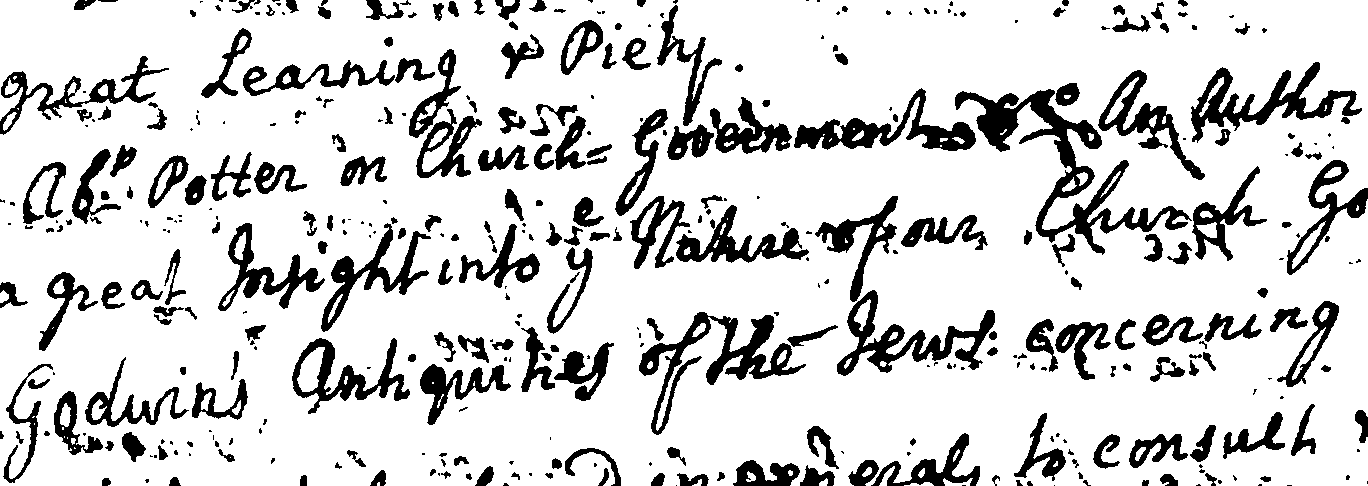 great Learning & Piety.
Abp. Potter on Church-Government An Author
a great Insight into ye Nature of our Church Go
Godwin's Antiquities of the Jews: concerning
in general, to consult